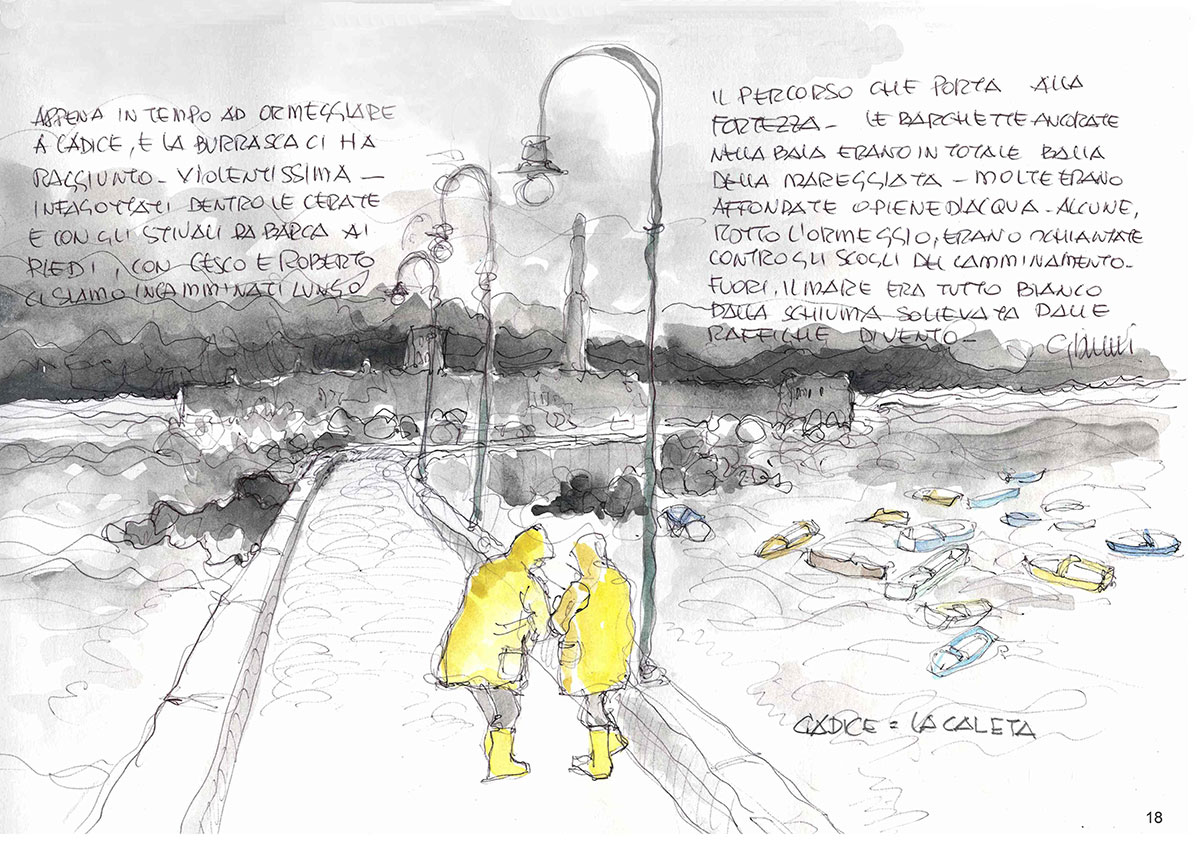 APPENA IN TEMPO AD ORMEGGIARE
A CADICE, E LA BURRASCA CI HA
RAGGIUNTO - VIOLENTISSIMA -
INFAGOTTATI DENTRO LE CERATE
E CON GLI STIVALI DA BARCA AI
PIEDI, CON CESCO E ROBERTO
CI SIAMO INCAMMINATI LUNGO
IL PERCORSO CHE PORTA ALLA
FORTEZZA - LE BARCHETTE ANCORATE
NELLA BAIA ERANO IN TOTALE BALIA
DELLA MAREGGIATA - MOLTE ERANO
AFFONDATE O PIENE D'ACQUA - ALCUNE,
ROTTO L'ORMEGGIO, ERANO SCHIANTATE
CONTRO GLI SCOGLI DEL CAMMINAMENTO -
FUORI, IL MARE ERA TUTTO BIANCO
DALLA SCHIUMA SOLLEVATA DALLE
RAFFICHE DI VENTO -
CADICE = LA CALETA
18